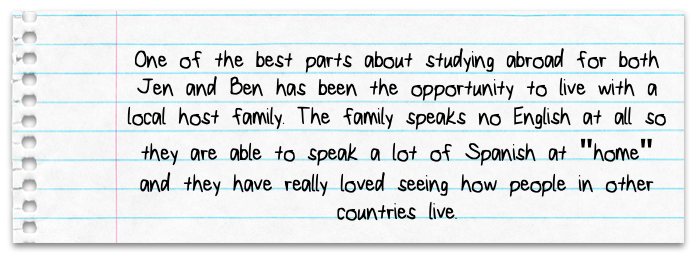 One of the best parts about studying abroad for both
Jen and Ben has been the opportunity to live with a
local host family. The family speaks no English at all so
they are able to speak a lot of Spanish at "home"
and they have really loved seeing how people in other
countries live.